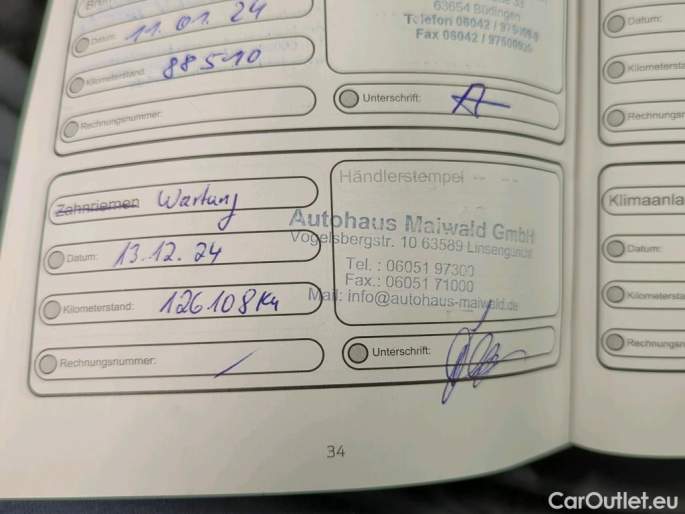 Datum: 11.01.24
63654 Büdingen
Telefon 06042 /
Fax 06042 /
Kilometerstand: 88510
Rechnungsnummer:
Unterschrift:
Zahnriemen Wartung
Händlerstempel
Autohaus Maiwald GmbH
Vogelsbergstr. 10 63589 Linsengericht
Datum: 13.12.24
Tel. : 06051 97300
Fax.: 06051 71000
Mail: info@autohaus-maiwald.de
Kilometerstand: 126108 Km
Rechnungsnummer: /
Unterschrift:
34
Datum:
Kilometersta
Rechnungsn
Klimaanla
Datum:
Kilometersta
Rechnungsn
CarOutlet.eu